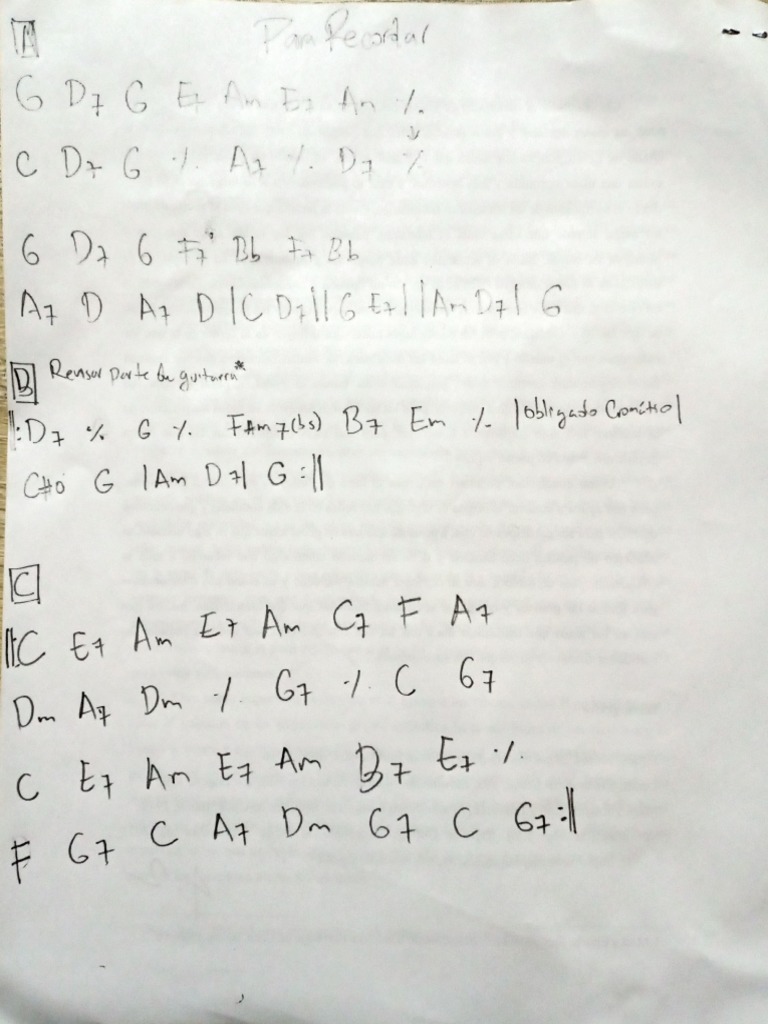 Para Recordar
A
G D7 G E7 Am E7 Am ٪
C D7 G ٪ A7 ٪ D7 ٪
G D7 G F7 Bb F7 Bb
A7 D A7 D |C D7||G E7||Am D7| G
B Revisar parte de guitarra*
‖:D7 ٪ G ٪ B7 Em ٪ |obligado Cromático|
C#o G |Am D7| G :‖
C
‖:C E7 Am E7 Am C7 F A7
Dm A7 Dm ٪ G7 ٪ C G7
C E7 Am E7 Am B7 E7 ٪
F G7 C A7 Dm G7 C G7:‖